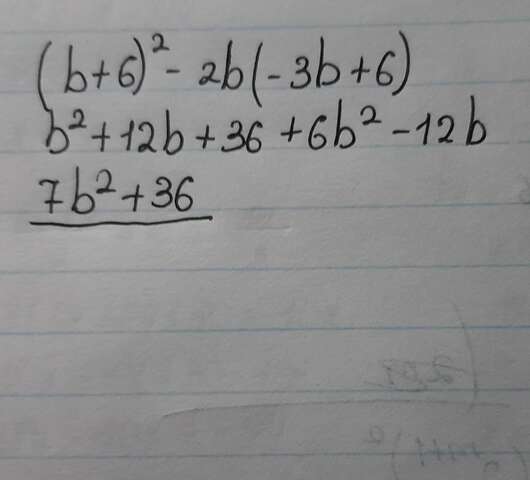 (b+6)² - 2b(-3b+6)
b²+12b+36+6b²-12b
7b²+36